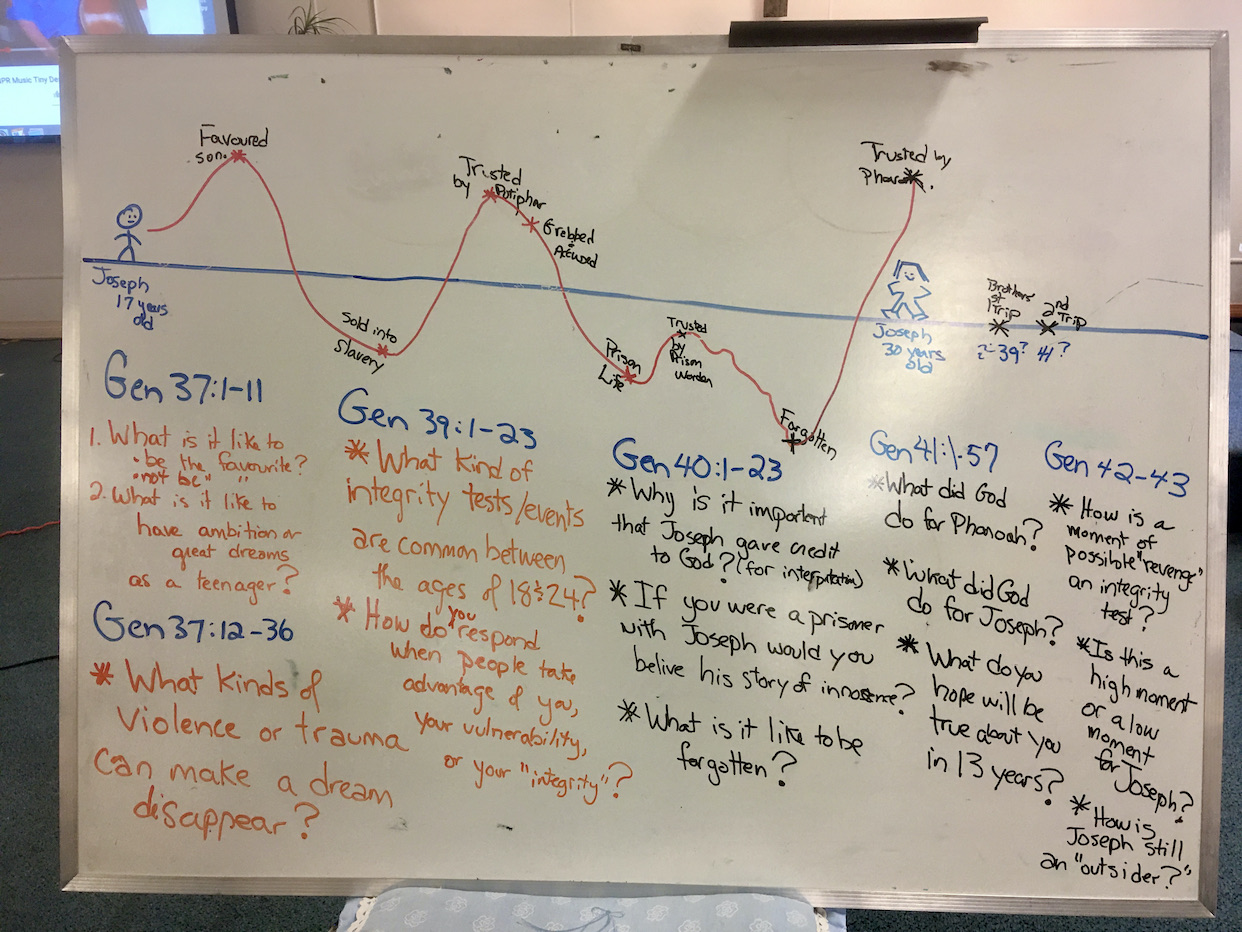 NPR Music Tiny De
Favoured
son.
Trusted
by Potiphar
Grabbed
& Accused
Trusted by
Pharoah.
Joseph
17 years
old
Sold into
Slavery
Prison
Life
Trusted
by
Prison
Warden
Forgotten
Joseph
30 years
old
Brothers'
1st Trip
39?
2nd Trip
41?
Gen 37:1-11
1. What is it like to
• be the favourite?
• not be " "
2. What is it like to
have ambition or
great dreams
as a teenager?
Gen 37:12-36
* What kinds of
violence or trauma
can make a dream
disappear?
Gen 39:1-23
* What kind of
integrity tests/events
are common between
the ages of 18 & 24?
* How do you respond
when people take
advantage of you,
your vulnerability,
or your "integrity"?
Gen 40:1-23
* Why is it important
that Joseph gave credit
to God? (for interpitation)
* If you were a prisoner
with Joseph would you
belive his story of innosense?
* What is it like to be
forgotten?
Gen 41:1-57
* What did God
do for Pharoah?
* What did God
do for Joseph?
* What do you
hope will be
true about you
in 13 years?
Gen 42-43
* How is a
moment of
possible "revenge"
an integrity
test?
* Is this a
high moment
or a low
moment
for Joseph?
* How is
Joseph still
an "outsider?"